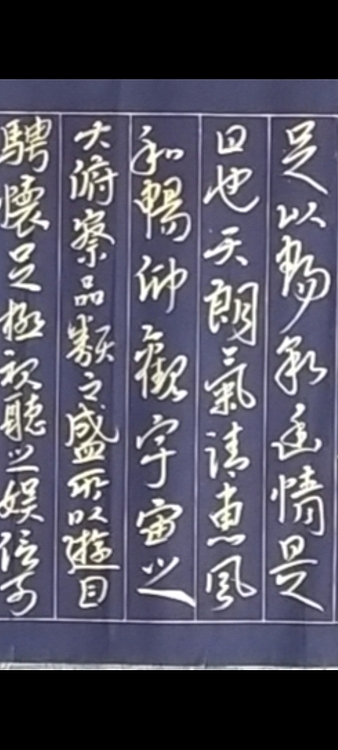 足以暢敘幽情是
日也天朗氣清惠風
和暢仰觀宇宙之
大俯察品類之盛所以遊目
騁懷足極視聽之娛信可